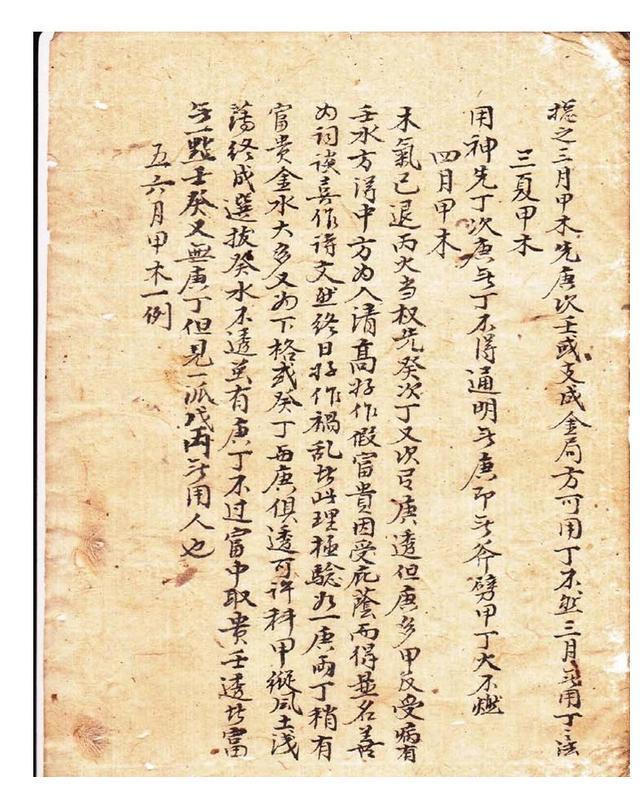 总之三月甲木先庚次壬或支成金局方可用丁不然三月无用丁之法
三夏甲木
用神先丁次庚无丁不得通明无庚即无斧劈甲丁火不燃
四月甲木
木氣已退丙火当权先癸次丁又次云庚透但庚多甲反受病有
壬水方得中方为人清高好作假富貴因受庇蔭而得显名善
为词談喜作诗文然终日好作禍乱此理極驗如一庚兩丁稍有
富貴金水太多又为下格或癸丁再庚俱透可许科甲縱风土浅
薄终成選拔癸水不透莫有庚丁不过富中取貴壬透者富
无一點壬癸又無庚丁但見一派戊丙无用人也
五六月甲木一例